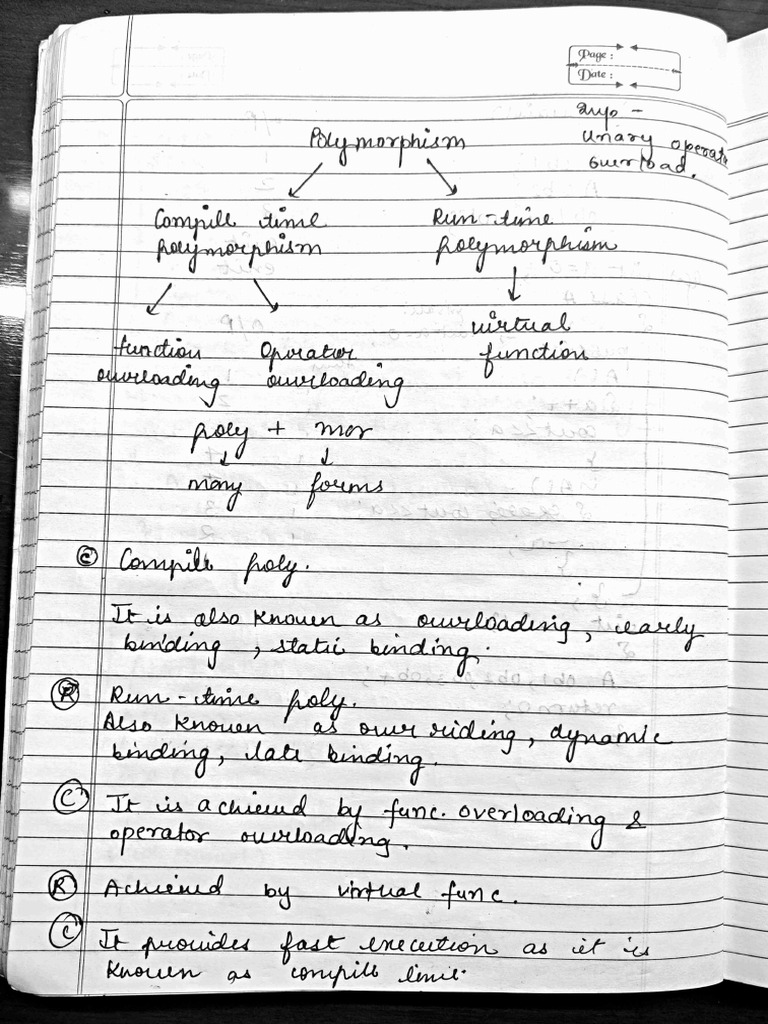 Page :
Date :
Imp -
Unary operat
overload.
Polymorphism
Compile time Run-time
polymorphism polymorphism
virtual
function Operator function
overloading overloading
poly + mor
many forms
C Compile poly.
It is also known as overloading, early
binding, static binding.
R Run-time poly.
Also known as overriding, dynamic
binding, late binding.
C It is achieved by func. overloading &
operator overloading.
R Achieved by virtual func.
C It provides fast execution as it is
known as compile time.